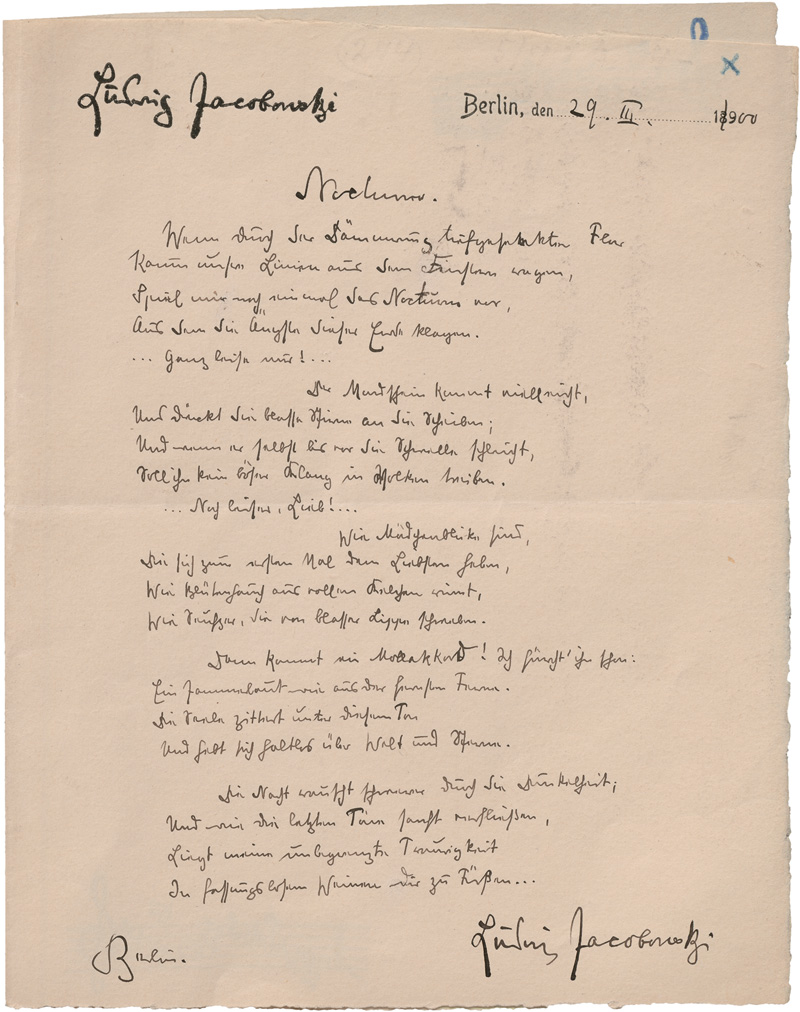 Ludwig Jacobowski
Berlin, den 29. III. 1900
Nocturno.
Wenn durch der Dämmerung tiefgesenkten Flor
Kaum unsre Linien aus dem Finstern ragen,
Spiel mir noch einmal das Nocturno vor,
Aus dem die Ängste dieser Erde klagen.
... Ganz leise nur! ...
Der Mondschein kommt vielleicht,
Und drückt die blasse Stirne an die Scheiben;
Und wenn er selbst bis vor die Schwelle schleicht,
Soll ihn kein böser Klang in Wolken treiben.
... Noch leiser, Lieb! ...
Wie Mädchenblicke sind,
Die sich zum ersten Mal dem Liebsten heben,
Wie Blütenhauch aus vollen Kelchen rinnt,
Wie Seufzer, die von blasser Lippe schweben.
Dann kommt ein Mollakkord! Ich fürcht' ihn schon:
Ein Jammerlaut wie aus der fernsten Ferne.
Die Seele zittert unter diesem Ton
Und hebt sich haltlos über Welt und Sterne.
Die Nacht rauscht schwerer durch die Dunkelheit;
Und wie die letzten Töne sacht verfließen,
Liegt meine unbegrenzte Traurigkeit
In fassungslosem Weinen dir zu Füßen...
Berlin.
Ludwig Jacobowski